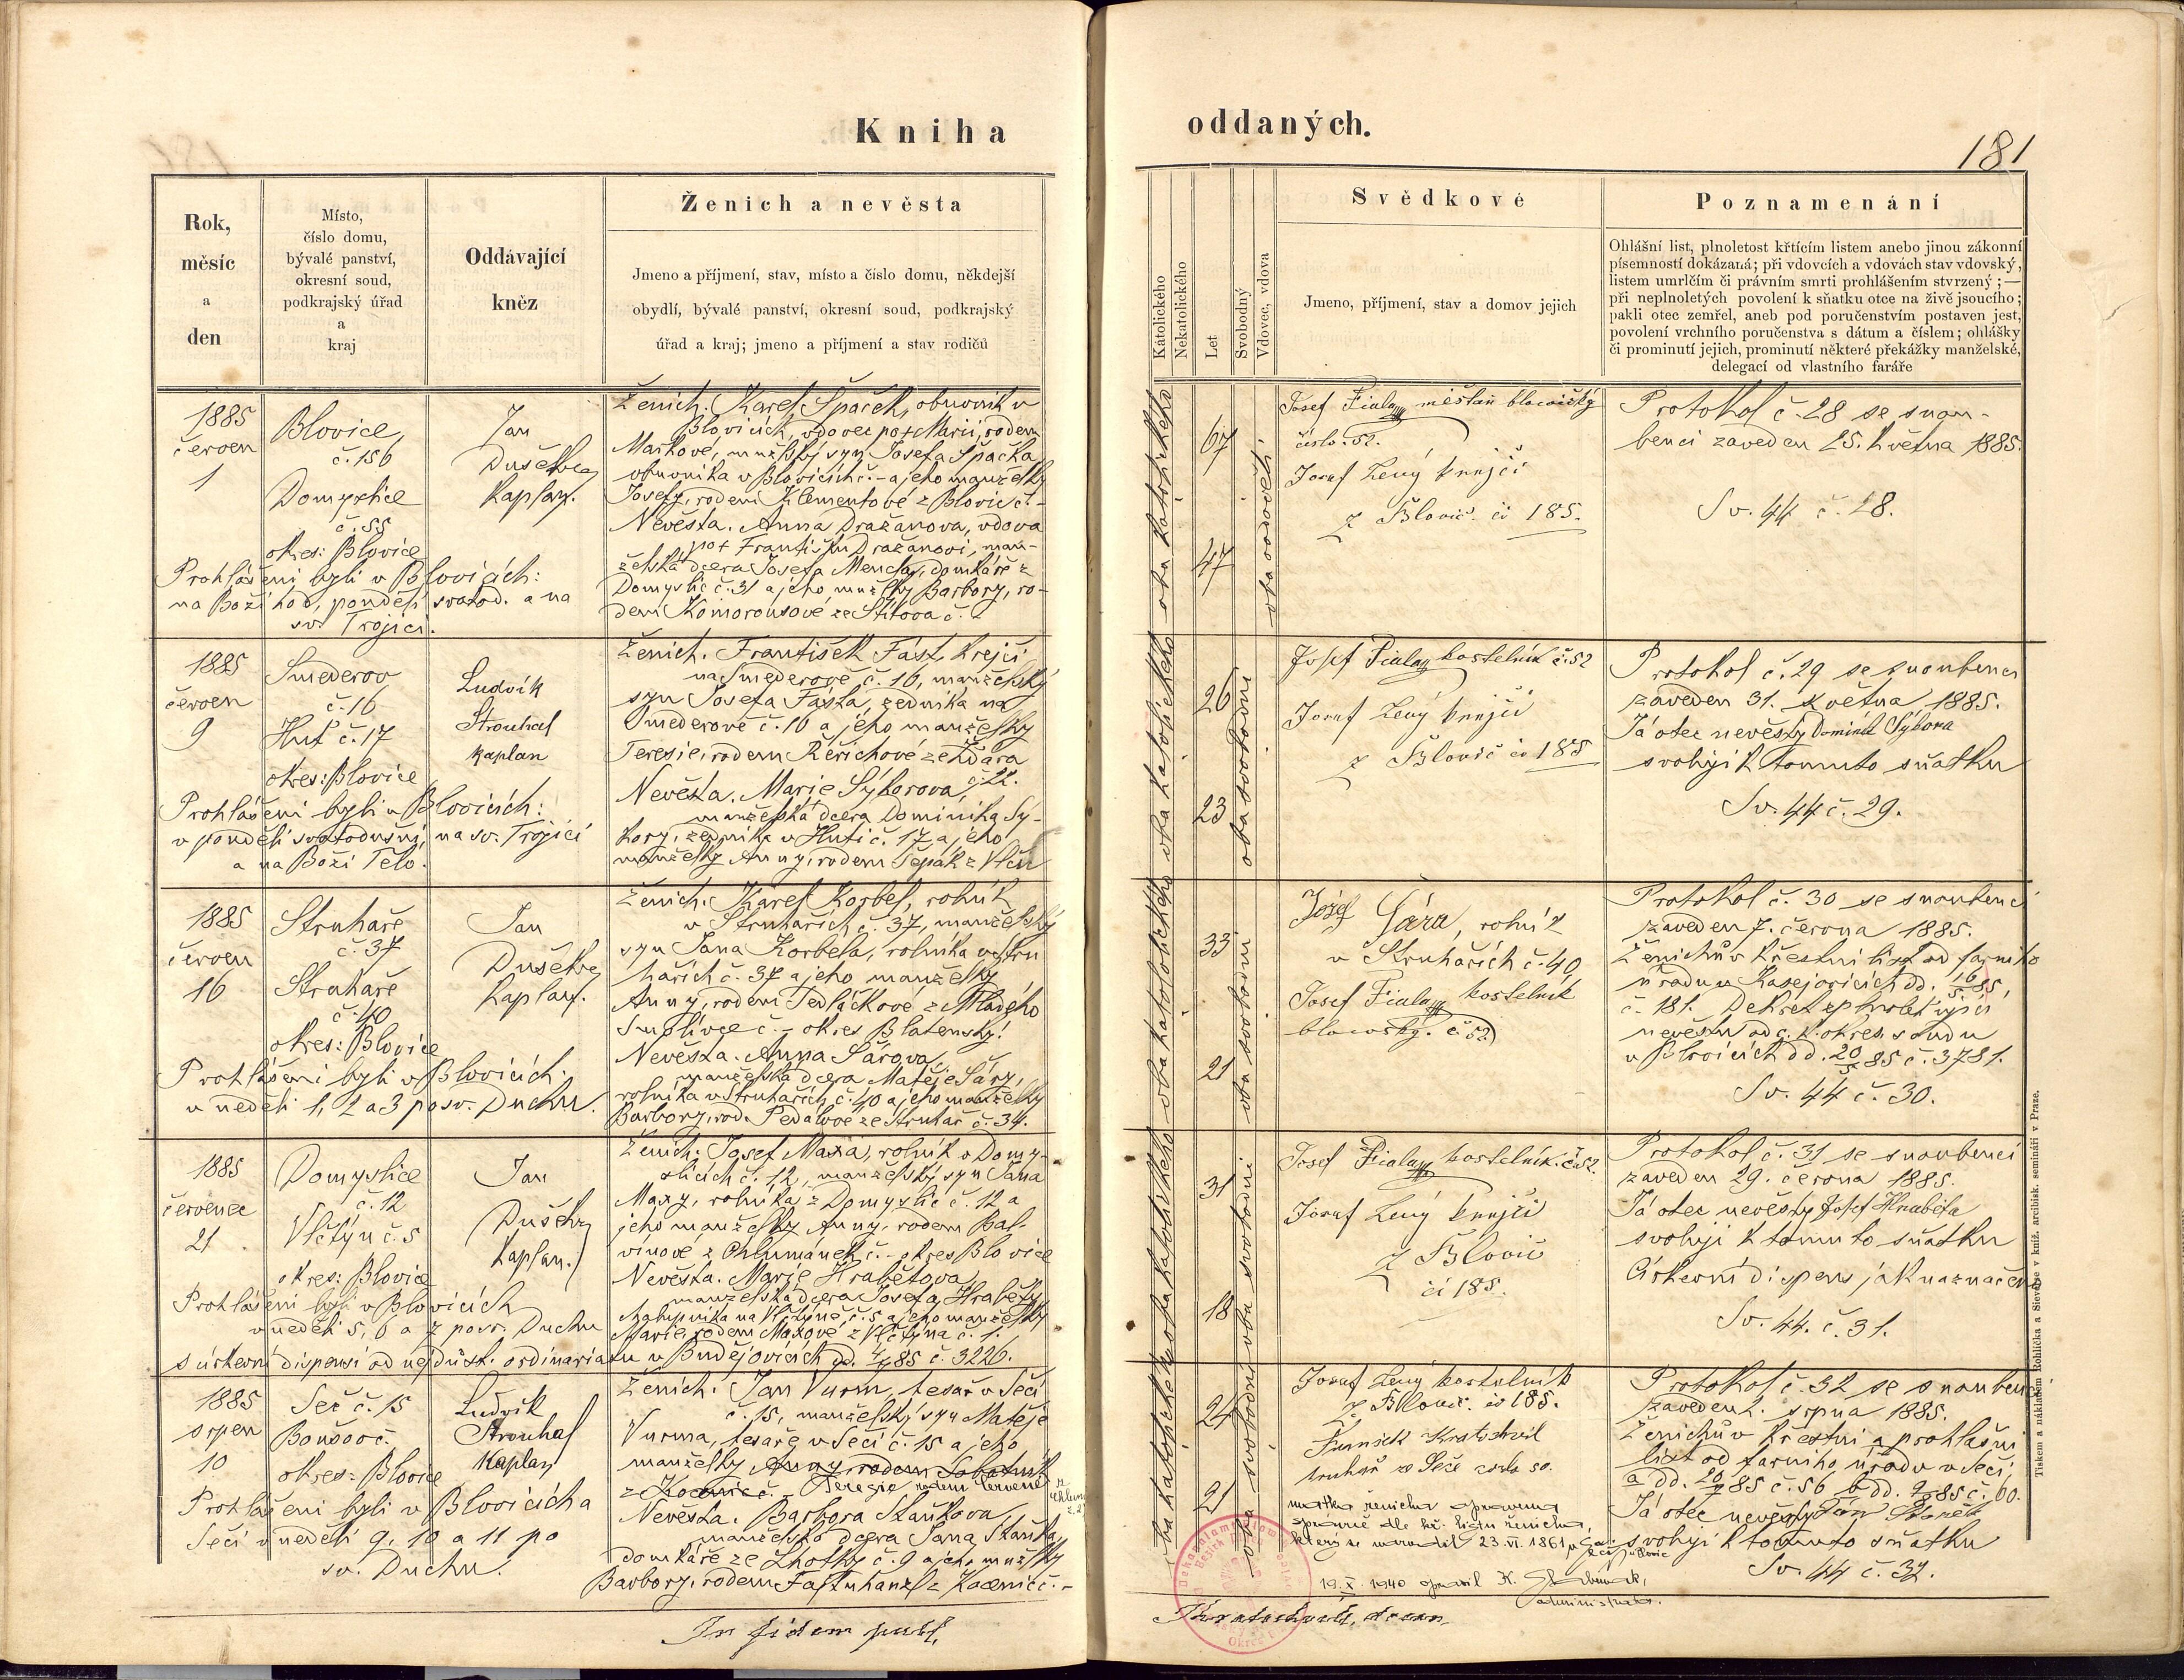 Kniha
oddaných.
181
Rok,
měsíc
a
den
Místo,
číslo domu,
bývalé panství,
okresní soud,
podkrajský úřad
a
kraj
Oddávající
kněz
Ženich a nevěsta
Jmeno a příjmení, stav, místo a číslo domu, někdejší
obydlí, bývalé panství, okresní soud, podkrajský
úřad a kraj; jmeno a příjmení a stav rodičů
Katolického
Nekatolického
Let
Svobodný
Vdovec, vdova
Svědkové
Jmeno, příjmení, stav a domov jejich
Poznamenání
Ohlášní list, plnoletost křtícím listem anebo jinou zákonní
písemností dokázaná; při vdovcích a vdovách stav vdovský,
listem umrlčím či právním smrti prohlášením stvrzený;—
při neplnoletých povolení k sňatku otce na živě jsoucího;
pakli otec zemřel, aneb pod poručenstvím postaven jest,
povolení vrchního poručenstva s dátum a číslem; ohlášky
či prominutí jejich, prominutí některé překážky manželské,
delegací od vlastního faráře
1885
červen
1
Blovice,
č. 156
Domyslice
č. 55
okres: Blovice
Jan
Dušek
kaplan.
Prohlášeni byli v Blovicích:
na Boží hod, pondělí svatod. a na
sv. Trojici.
Ženich. Karel Špaček, obuvník v
Blovicích, vdovec po + Marii, rodem
Maškové, manžlský syn Josefa Špačka
obuvníka v Blovicích č. - a jeho manželky
Josefy, rodem Klementové z Blovic č. -
Nevěsta. Anna Dražanova, vdova
po + Františku Dražanovi, man-
želská dcera Josefa Mencla, domkáře z
Domyslic č. 31 a jeho manžlky Barbory, ro-
dem Komorousové ze Štítova č. -
67
47
oba vdovělí
Josef Fiala měšťan blovický
číslo 52.
Josef Lený krejčí
z Blovic. čís 185.
Protokol č. 28 se snou-
benci zaveden 25. května 1885.
Sv. 44 č. 28.
1885
červen
9
Smederov
č. 16
Huť č. 17
okres: Blovice
Ludvík
Strouhal
kaplan
Prohlášeni byli v Blovicích:
v pondělí svatodušní, na sv. Trojici
a na Boží Tělo.
Ženich. František Fást, krejčí
na Smederově č. 16, manželský
syn Josefa Fásta, zedníka na
Smederově č. 16 a jeho manželky
Teresie, rodem Řeřichové ze Žďára
č. 22.
Nevěsta. Marie Sýkorova,
manželská dcera Dominika Sý-
kory, zedníka v Huti č. 17 a jeho
manželky Anny, rodem Čepák z Vlčic
26
23
oba svobodní
Josef Fiala kostelník č. 52
Josef Lený krejčí
z Blovic čís 185
Protokol č. 29 se snoubenci
zaveden 31. května 1885.
Já otec nevěsty Dominik Sýkora
svoluji k tomuto sňatku
Sv. 44 č. 29.
1885
červen
16
Struhaře
č. 37
Struhaře
č. 40
okres: Blovice
Jan
Dušek
kaplan.
Prohlášeni byli v Blovicích:
v neděli 1, 2 a 3 po sv. Duchu.
Ženich. Karel Korbel, rolník
v Struhařích č. 37, manželský
syn Jana Korbela, rolníka v Stru
hařích č. 37 a jeho manželky
Anny, rodem Sedláčkové z Mladého
Smolivce č. - okres Blatenský!
Nevěsta. Anna Sárova,
manželská dcera Matěje Sáry,
rolníka v Struhařích č. 40 a jeho manželky
Barbory, rod. Pedálové ze Struhař č. 34.
33
21
oba svobodni
Jozéf Sára, rolník
v Struhařích č. 40
Josef Fiala kostelník
blovický. č. 52
Protokol č. 30 se snoubenci
zaveden 7. června 1885.
Ženichův křestní list od farního
úřadu v Kasejovicích dd. 16/5 85,
č. 181.
nevěstu od c. k. okres. soudu
v Blovicích dd. 20/5 85 č. 3781.
Sv. 44 č. 30.
1885
červenec
21
Domyslice
č. 12
Vlčtýn č. 5
okres: Blovice
Jan
Dušek
kaplan.
Prohlášeni byli v Blovicích
v neděli 5, 6 a 7 po sv. Duchu
s církevní dispensí od nejdůst. ordinariatu v Budějovicích dd. 4/7 85 č. 3226.
Ženich: Josef Maxa, rolník v Domy-
slicích č. 12, manželský syn Jana
Maxy, rolníka z Domyslic č. 12 a
jeho manželky Anny, rodem Bal-
vínové z Chlumánek č. - okres Blovice
Nevěsta. Marie Hrabětova,
manželská dcera Josefa Hraběty,
chalupníka na Vlčtýně č. 5 a jeho manželky
Marie, rodem Maxové z Vlčtýna č. 1.
31
18
oba svobodni
Josef Fiala kostelník. č. 52.
Josef Lený krejčí
z Blovic
čí 185.
Protokol č. 31 se snoubenci
zaveden 29. června 1885.
Já otec nevěsty Josef Hraběta
svoluji k tomuto sňatku
Církevní dispens jak naznačen
Sv. 44. č. 31.
1885
srpen
10
Seč č. 15
Boušov č.
okres: Blovice
Ludvík
Strouhal
kaplan
Prohlášeni byli v Blovicích a
Seči v neděli 9, 10 a 11 po
sv. Duchu.
Ženich: Jan Vurm, tesař v Seči
č. 15, manželský syn Matěje
Vurma, tesaře v Seči č. 15 a jeho
manželky Anny, rodem Sobotník
z Kocenic č. - Terezie rodem Červené z
Chlumu
č. 2
Nevěsta. Barbora Staňkova,
manželská dcera Jana Staňka,
domkáře ze Lhotky č. 9 a jeho manžlky
Barbory, rodem Fajtuhanzl z Kocenic č. -
24
21
oba svobodni
Josef Lený kostelník
z Blovic. čís 185.
Kratochvil
truhlář v Seči číslo 50.
matka ženicha opravena
správně dle kř. listu ženicha,
který se narodil 23. VI. 1861
19. X. 1940 opravil K.
administrator.
Protokol č. 32 se snoubenci
zaveden 2. srpna 1885.
Ženichův křestní a prohlášní
list od farního úřadu v Seči,
a dd. 20/7 85 č. 56 b dd. 9/8 85 č. 60.
Já otec nevěsty Ján Staněk
svoluji k tomuto sňatku
Sv. 44 č. 32.
oba katolického
In fidem publ.
Kratochvíl, décan
Tiskem a nákladem Rohlíčka a Sieverse v kníž. arcibisk. semináři v Praze.